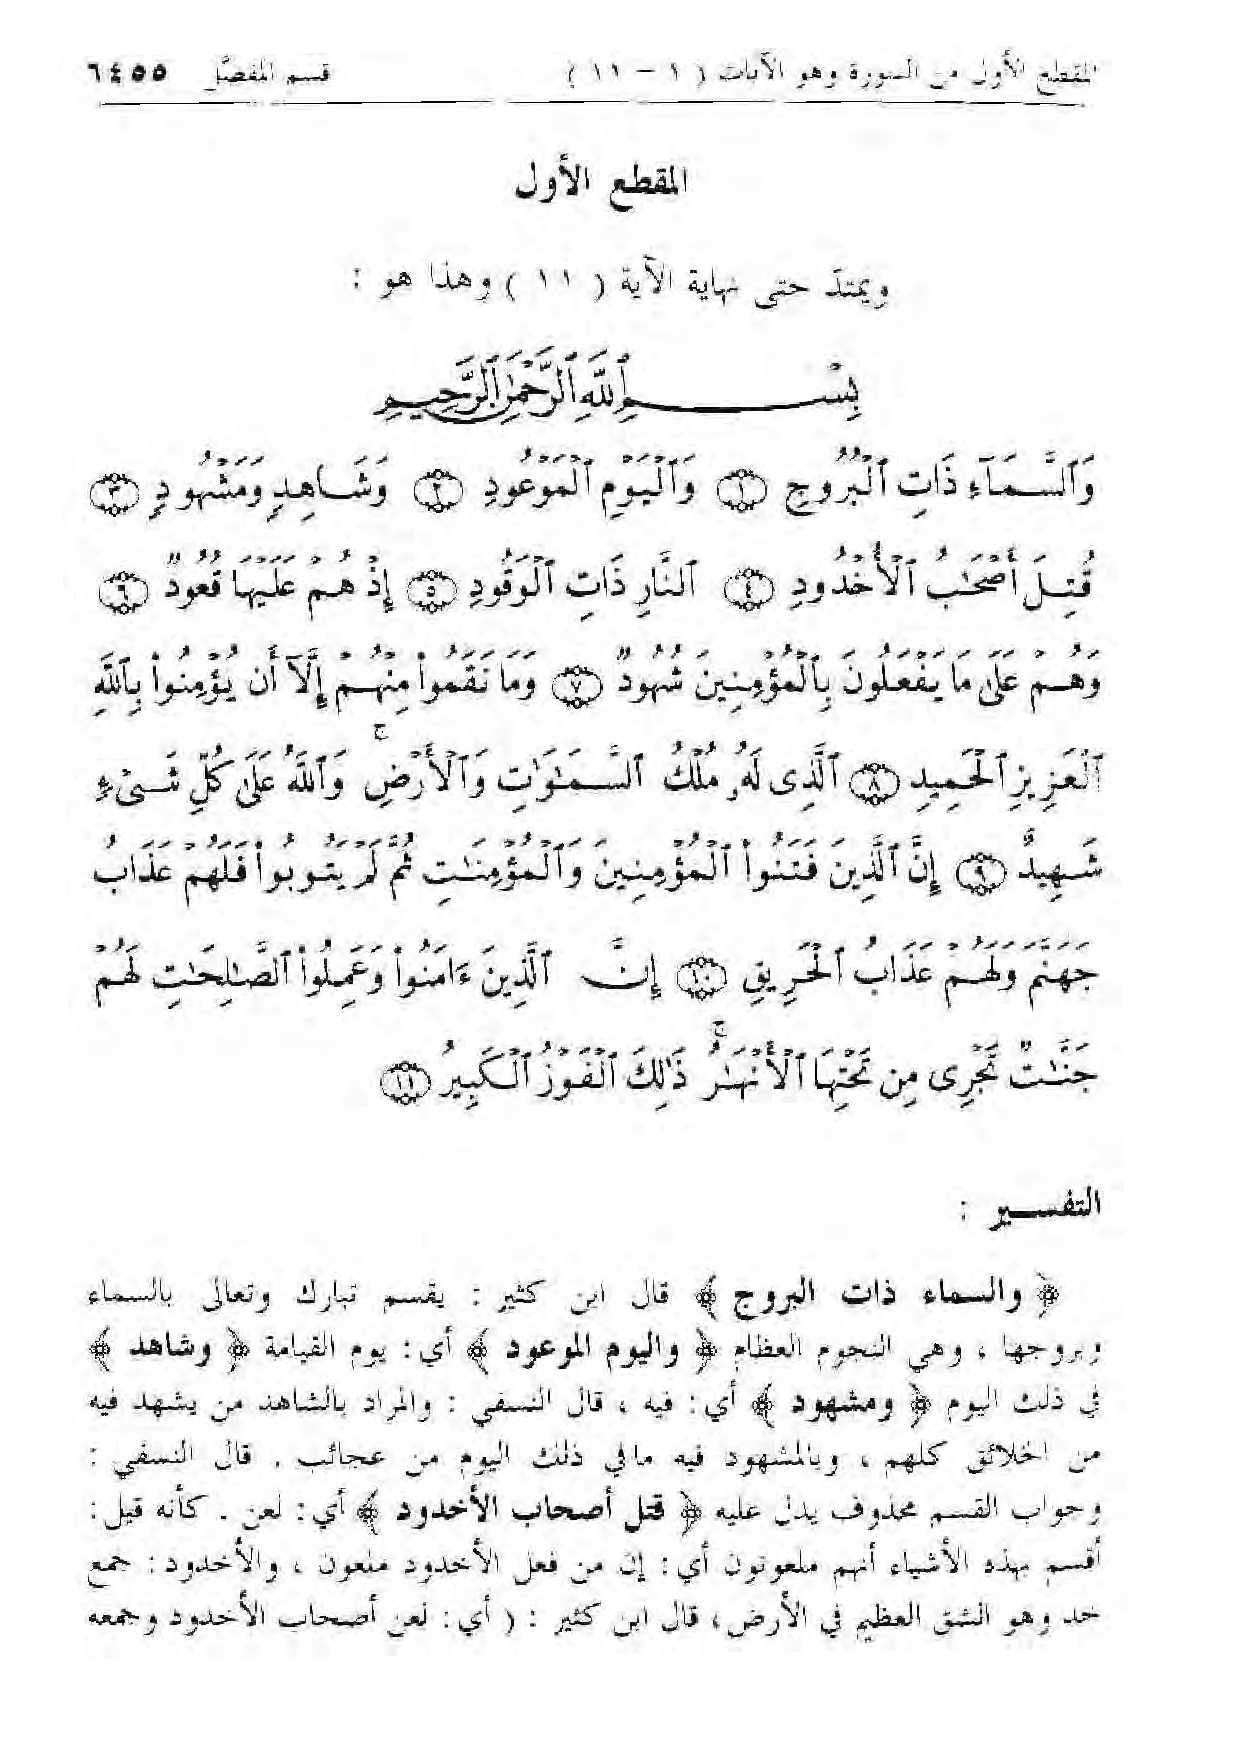 المقطع الأول من السورة وهو الآيات ( ١ - ١١ ) قسم المفصَّل ٦٤٥٥
المقطع الأول
ويمتدّ حتى نهاية الآية ( ١١ ) وهذا هو :
بِسْمِ ٱللَّهِ ٱلرَّحْمَٰنِ ٱلرَّحِيمِ
وَٱلسَّمَآءِ ذَاتِ ٱلْبُرُوجِ ١ وَٱلْيَوْمِ ٱلْمَوْعُودِ ٢ وَشَاهِدٍ وَمَشْهُودٍ ٣
قُتِلَ أَصْحَٰبُ ٱلْأُخْدُودِ ٤ ٱلنَّارِ ذَاتِ ٱلْوَقُودِ ٥ إِذْ هُمْ عَلَيْهَا قُعُودٌ ٦
وَهُمْ عَلَىٰ مَا يَفْعَلُونَ بِٱلْمُؤْمِنِينَ شُهُودٌ ٧ وَمَا نَقَمُوا۟ مِنْهُمْ إِلَّآ أَن يُؤْمِنُوا۟ بِٱللَّهِ
ٱلْعَزِيزِ ٱلْحَمِيدِ ٨ ٱلَّذِى لَهُۥ مُلْكُ ٱلسَّمَٰوَٰتِ وَٱلْأَرْضِ ۚ وَٱللَّهُ عَلَىٰ كُلِّ شَىْءٍ
شَهِيدٌ ٩ إِنَّ ٱلَّذِينَ فَتَنُوا۟ ٱلْمُؤْمِنِينَ وَٱلْمُؤْمِنَٰتِ ثُمَّ لَمْ يَتُوبُوا۟ فَلَهُمْ عَذَابُ
جَهَنَّمَ وَلَهُمْ عَذَابُ ٱلْحَرِيقِ ١٠ إِنَّ ٱلَّذِينَ ءَامَنُوا۟ وَعَمِلُوا۟ ٱلصَّٰلِحَٰتِ لَهُمْ
جَنَّٰتٌ تَجْرِى مِن تَحْتِهَا ٱلْأَنْهَٰرُ ۚ ذَٰلِكَ ٱلْفَوْزُ ٱلْكَبِيرُ ١١
التفسير :
﴿ والسماء ذات البروج ﴾ قال ابن كثير : يقسم تبارك وتعالى بالسماء
وبروجها ، وهي النجوم العظام ﴿ واليوم الموعود ﴾ أي : يوم القيامة ﴿ وشاهد ﴾
في ذلك اليوم ﴿ ومشهود ﴾ أي : فيه ، قال النسفي : والمراد بالشاهد من يشهد فيه
من الخلائق كلهم ، وبالمشهود فيه مافي ذلك اليوم من عجائب . قال النسفي :
وجواب القسم محذوف يدل عليه ﴿ قتل أصحاب الأخدود ﴾ أي : لعن . كأنه قيل :
أقسم بهذه الأشياء أنهم ملعونون أي : إن من فعل الأخدود ملعون ، والأخدود : جمع
خد وهو الشق العظيم في الأرض ، قال ابن كثير : ( أي : لعن أصحاب الأخدود وجمعه